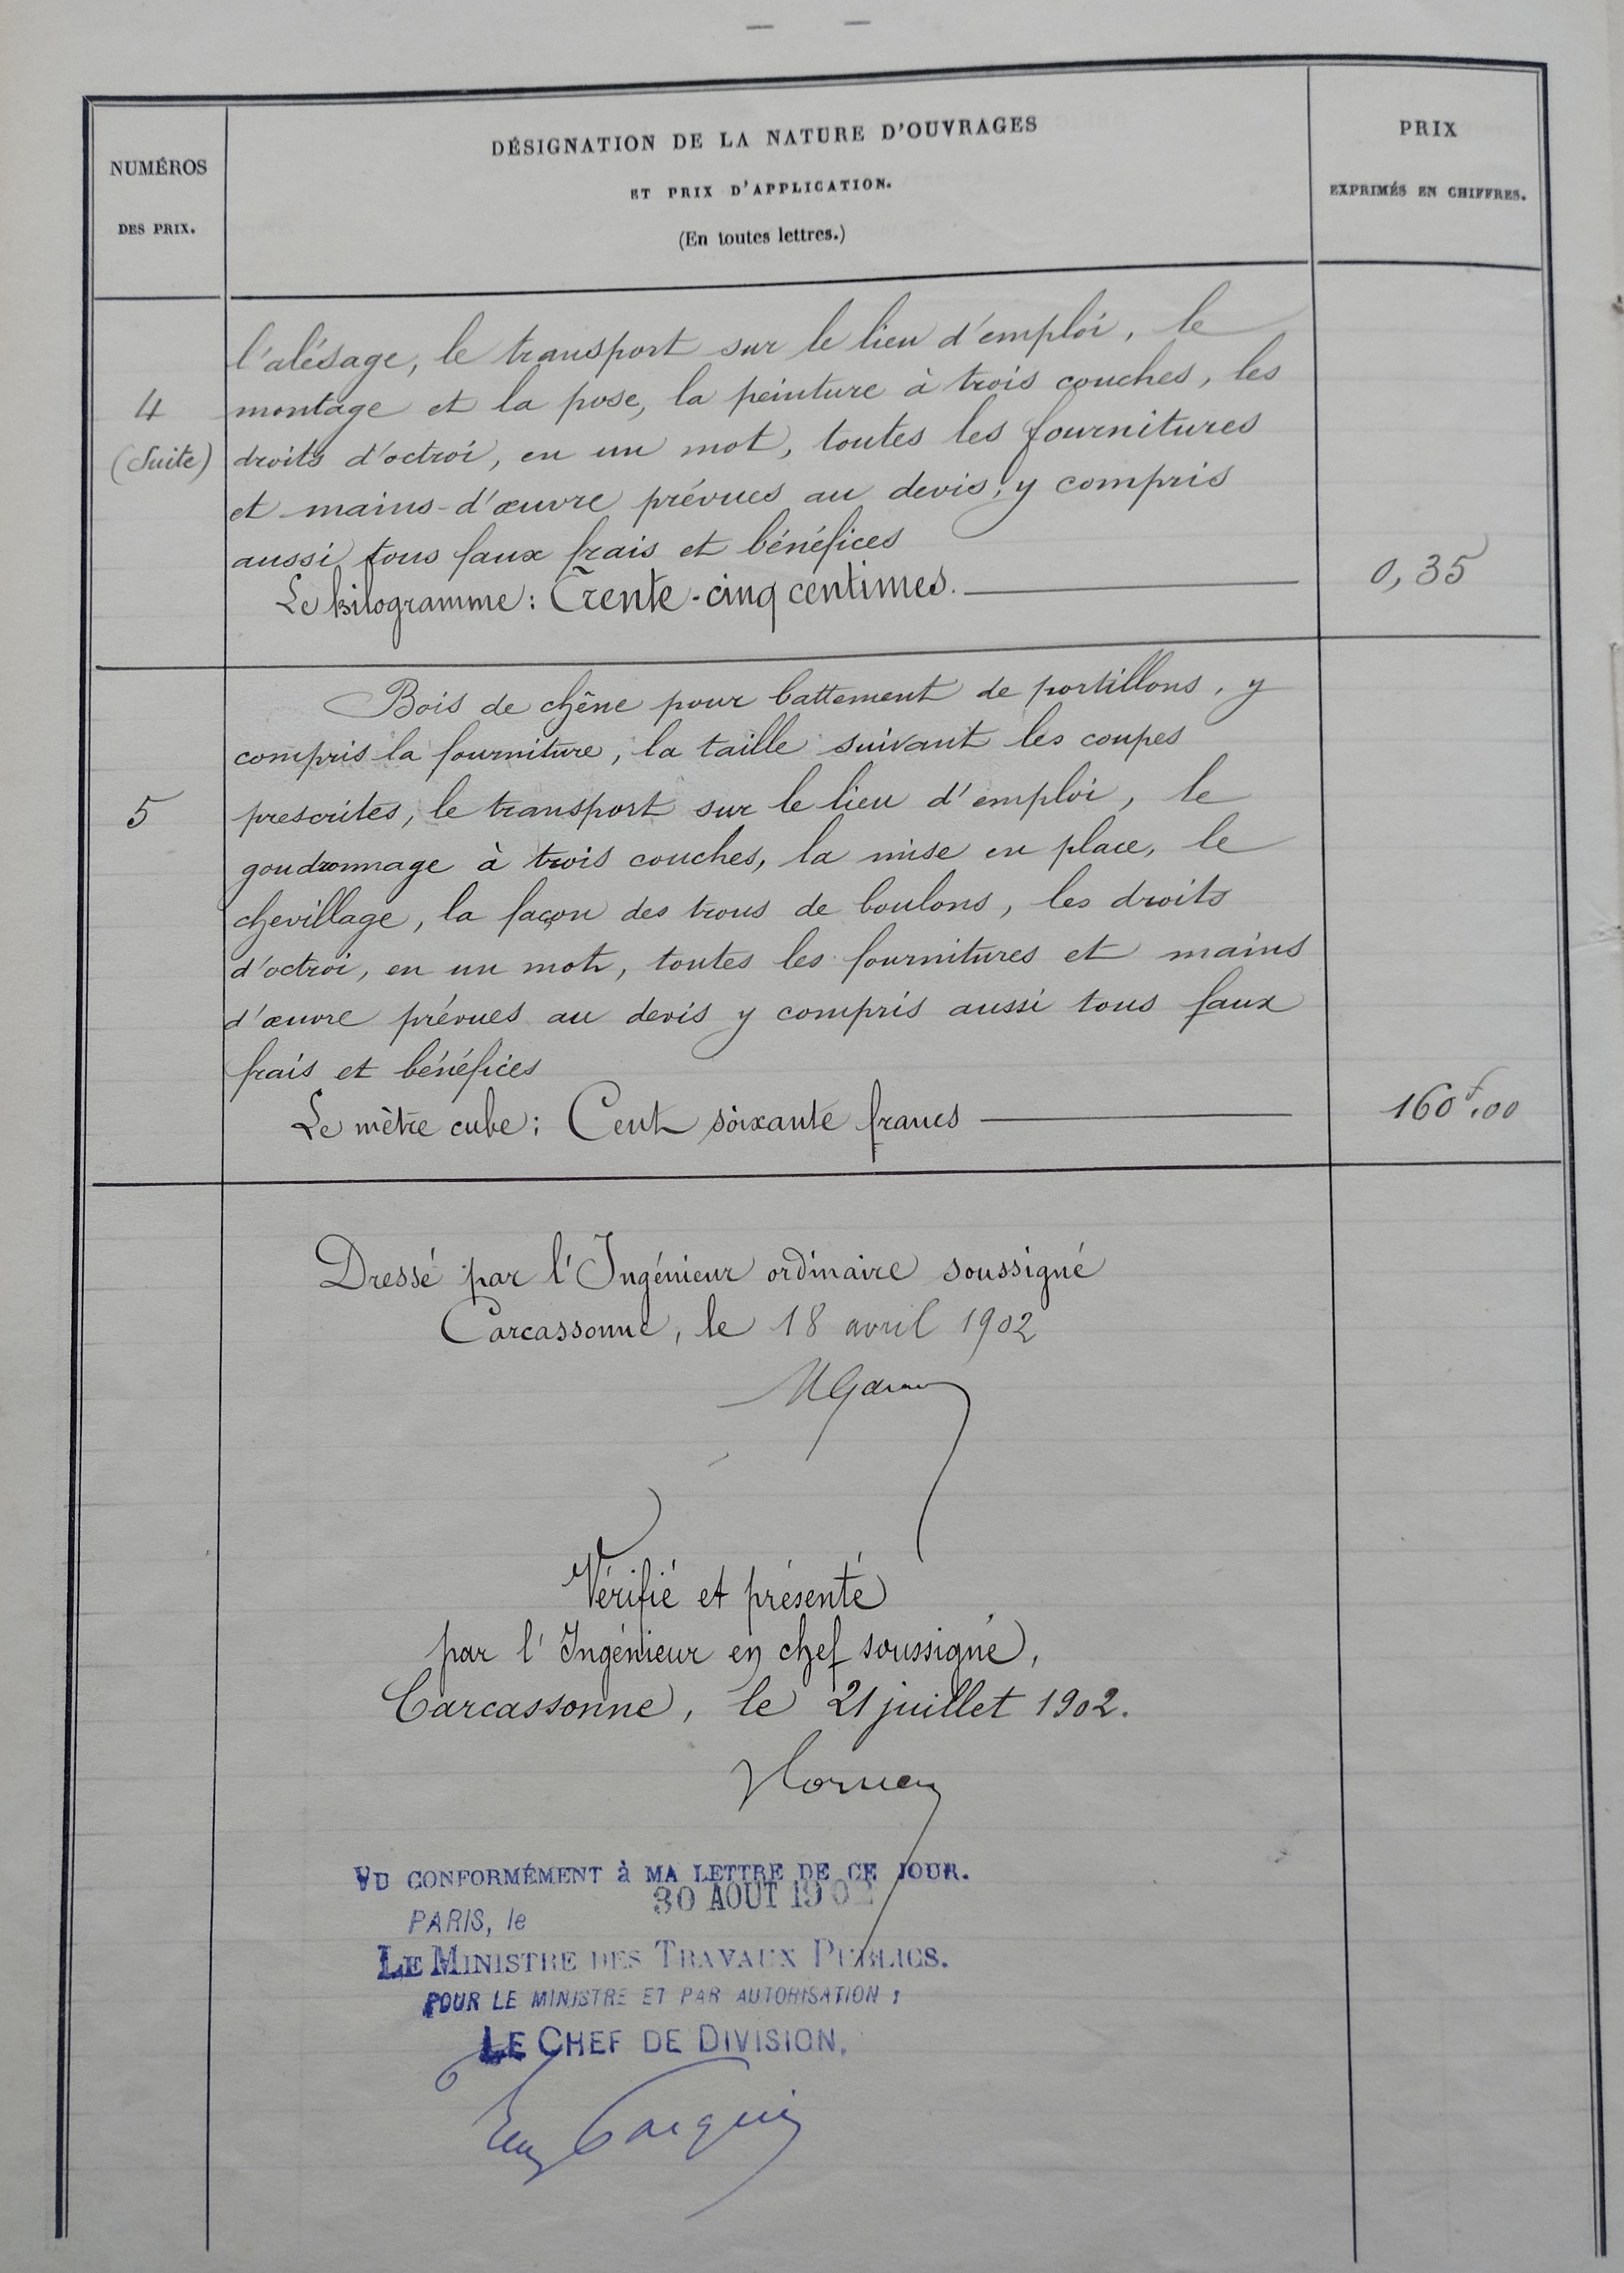 NUMÉROS
DES PRIX.
DÉSIGNATION DE LA NATURE D'OUVRAGES
ET PRIX D'APPLICATION.
(En toutes lettres.)
PRIX
EXPRIMÉS EN CHIFFRES.
4
(Suite)
l'alésage, le transport sur le lieu d'emploi, le
montage et la pose, la peinture à trois couches, les
droits d'octroi, en un mot, toutes les fournitures
et mains-d'œuvre prévues au devis, y compris
aussi tous faux frais et bénéfices
Le kilogramme : Trente-cinq centimes.
0,35
5
Bois de chêne pour battement de portillons, y
compris la fourniture, la taille suivant les coupes
prescrites, le transport sur le lieu d'emploi, le
goudronnage à trois couches, la mise en place, le
chevillage, la façon des trous de boulons, les droits
d'octroi, en un mot, toutes les fournitures et mains
d'œuvre prévues au devis y compris aussi tous faux
frais et bénéfices
Le mètre cube : Cent soixante francs
160f,00
Dressé par l'Ingénieur ordinaire soussigné
Carcassonne, le 18 avril 1902
Vérifié et présenté
par l'Ingénieur en chef soussigné,
Carcassonne, le 21 juillet 1902.
VU CONFORMÉMENT à MA LETTRE DE CE JOUR.
30 AOUT 1902
PARIS, le
LE MINISTRE DES TRAVAUX PUBLICS.
POUR LE MINISTRE ET PAR AUTORISATION :
LE CHEF DE DIVISION,